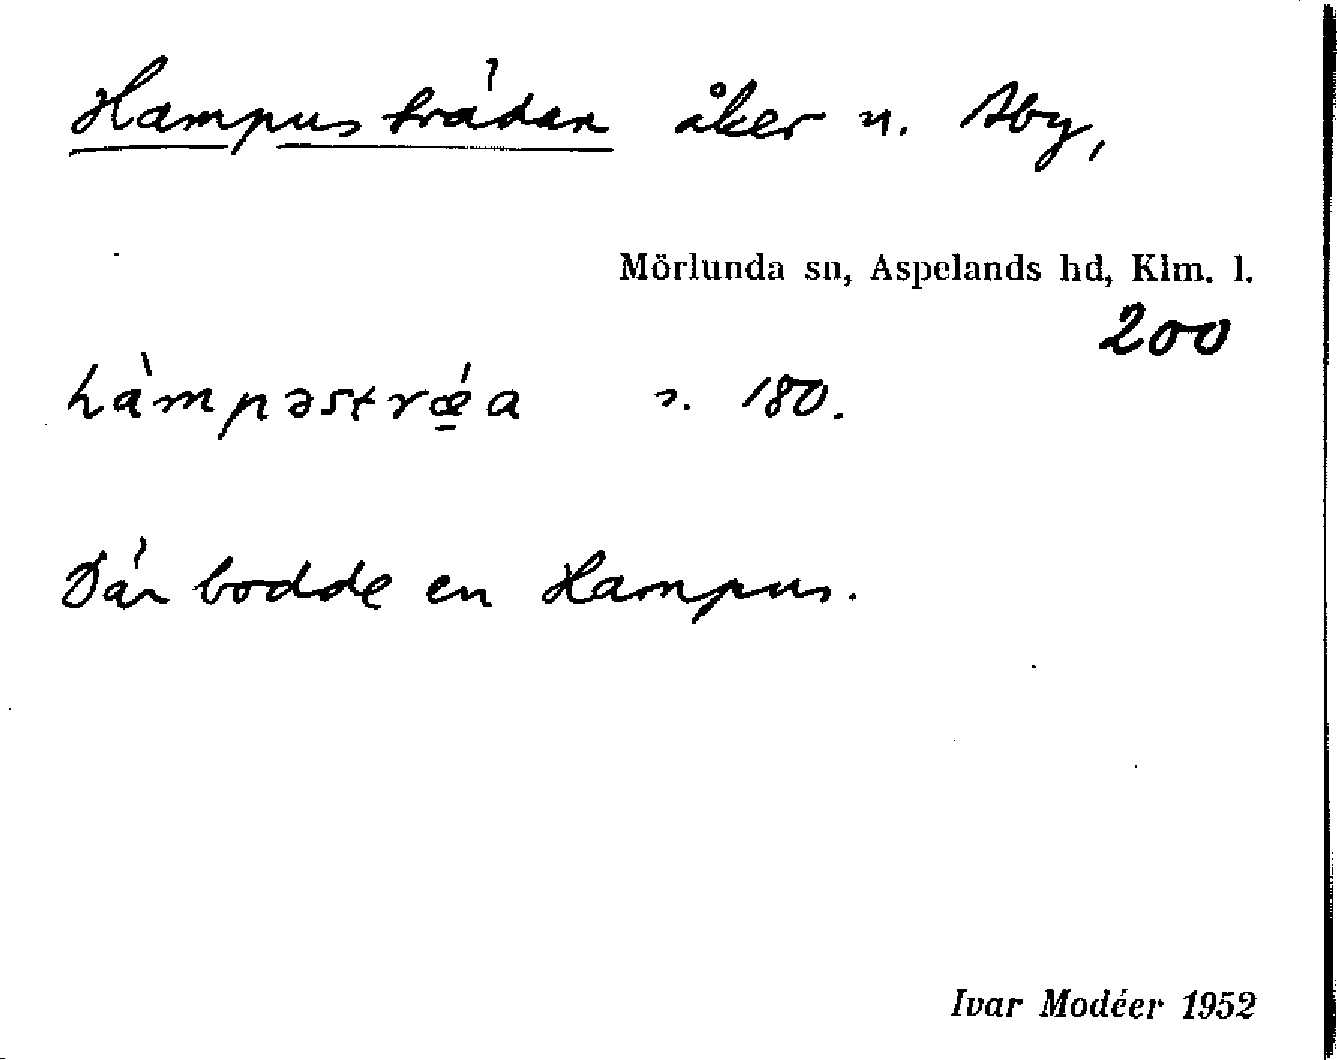 Hampusträdan åker n. Aby,
Mörlunda sn, Aspelands hd, Klm. l.
200
hàmpəstrǽ̠a s. 180.
Där bodde en Hampus.
Ivar Modéer 1952